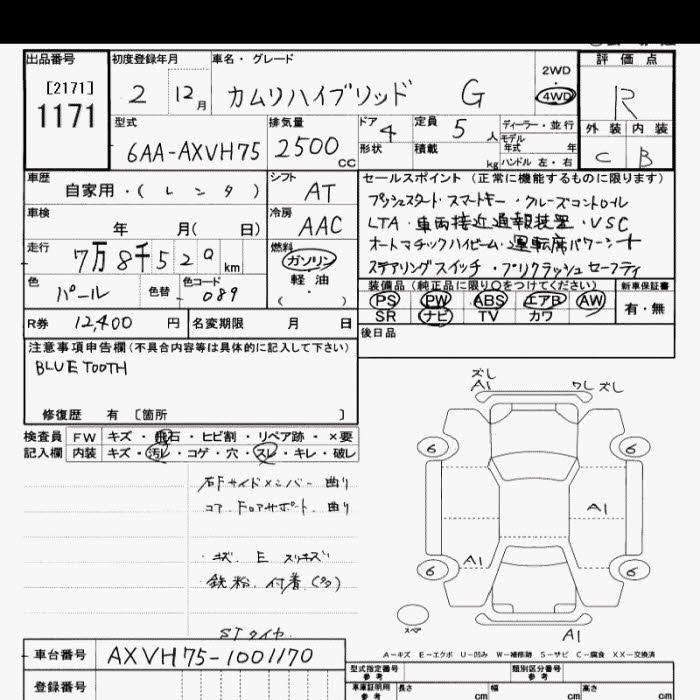 出品番号 初度登録年月 車名・グレード 2WD 評価点
[2171]
1171 2 12月 カムリハイブリッド G 4WD R
型式 排気量 ドア 定員 ディーラー・並行 外装 内装
6AA-AXVH75 2500cc 4 5人 モデル年式 年 C B
形状 積載 kg ハンドル 左・右
車歴 シフト セールスポイント(正常に機能するものに限ります)
自家用・(レンタ) AT プッシュスタート・スマートキー・クルーズコントロール
車検 冷房 LTA・車両接近通報装置・VSC
年 月( 日) AAC オートマチックハイビーム・運転席パワーシート
走行 燃料 ステアリングスイッチ・プリクラッシュセーフティ
7万8千520km ガソリン
色 色替 色コード 軽油 装備品(純正品に限り○をつけてください) 新車保証書
パール - 089 ( ・ ) PS PW ABS エアB AW 有・無
R券 12,400円 名変期限 月 日 SR ナビ TV カワ
後日品
注意事項申告欄(不具合内容等は具体的に記入して下さい)
BLUETOOTH
修復歴 有 〔箇所 〕
検査員 FW キズ・飛石・ヒビ割・リペア跡・×要
記入欄 内装 キズ・汚レ・コゲ・穴・スレ・キレ・破レ
ズレ
A1 ワレ ズレ
6 6
右Fサイドメンバー 曲り
コアF ロアサポート 曲り
A1
・キズ E スリキズ
A1
6 6
鉄粉 付着(多)
スペア
STタイヤ A1
A-キズ E-エクボ U-凹み W-補修跡 S-サビ C-腐食 XX-交換済
車台番号 AXVH75-1001170
型式指定番号 参考 類別区分番号 参考
登録番号 車庫証明用 参考 長さ cm 幅 cm 高さ cm